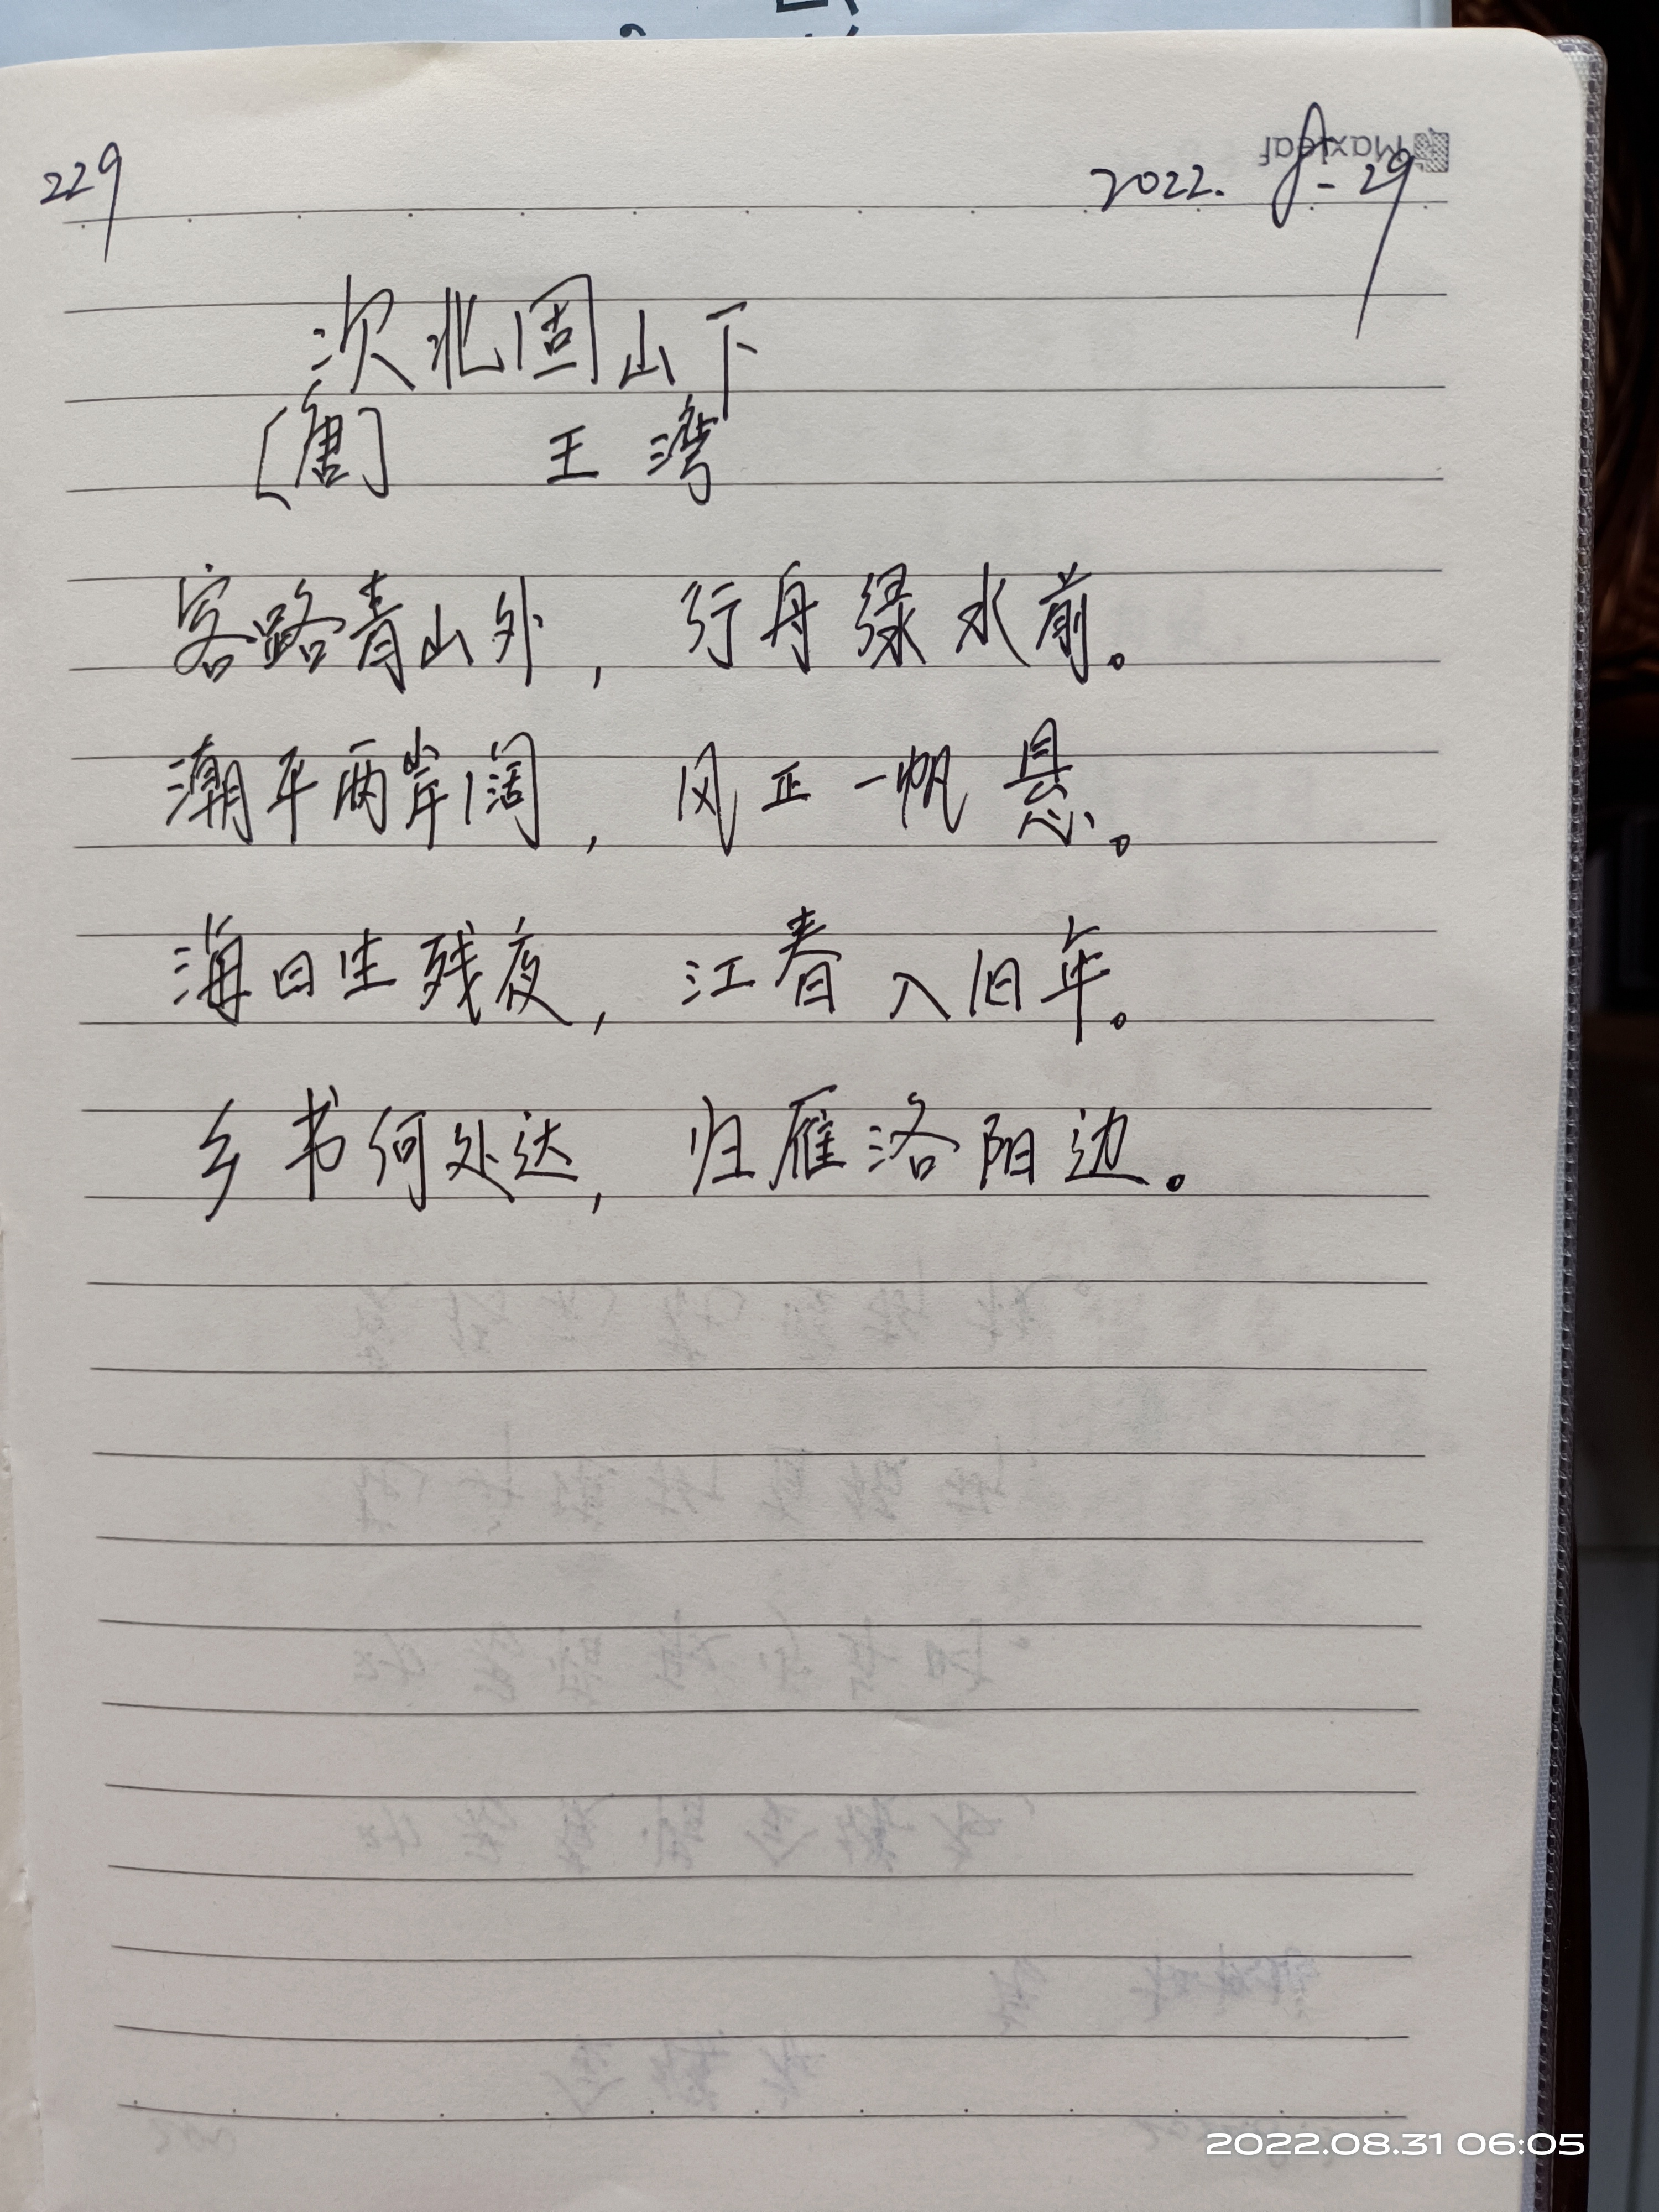 229
2022. 8-29
Maxleaf
次北固山下
[唐] 王湾
客路青山外, 行舟绿水前。
潮平两岸阔, 风正一帆悬。
海日生残夜, 江春入旧年。
乡书何处达, 归雁洛阳边。
2022.08.31 06:05